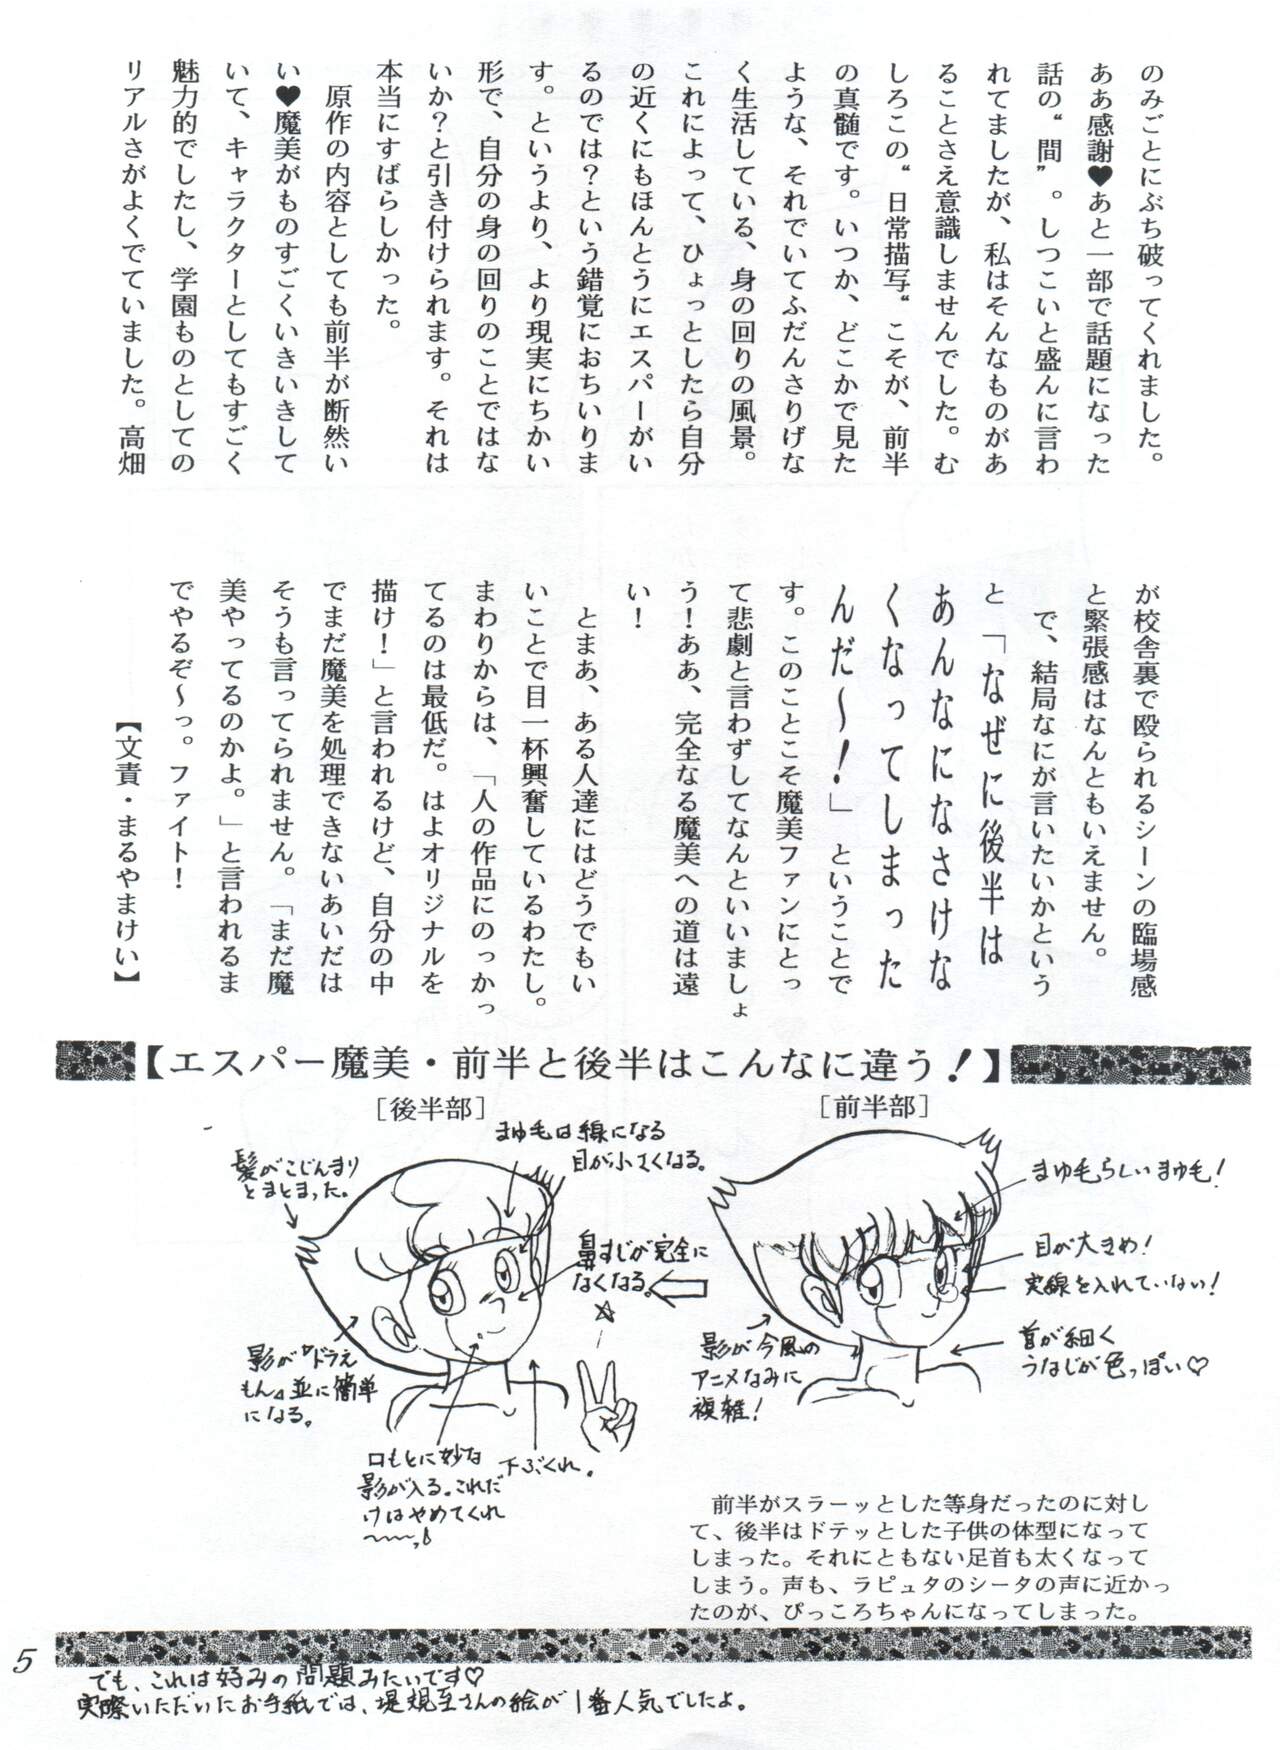 のみごとにぶち破ってくれました。
ああ感謝♥あと一部で話題になった
話の“間”。しつこいと盛んに言わ
れてましたが、私はそんなものがあ
ることさえ意識しませんでした。む
しろこの“日常描写“こそが、前半
の真髄です。いつか、どこかで見た
ような、それでいてふだんさりげな
く生活している、身の回りの風景。
これによって、ひょっとしたら自分
の近くにもほんとうにエスパーがい
るのでは？という錯覚におちいりま
す。というより、より現実にちかい
形で、自分の身の回りのことではな
いか？と引き付けられます。それは
本当にすばらしかった。
原作の内容としても前半が断然い
い♥魔美がものすごくいきいきして
いて、キャラクターとしてもすごく
魅力的でしたし、学園ものとしての
リアルさがよくでていました。高畑
が校舎裏で殴られるシーンの臨場感
と緊張感はなんともいえません。
で、結局なにが言いたいかという
と「なぜに後半は
あんなになさけな
くなってしまった
んだ～！」ということで
す。このことこそ魔美ファンにとっ
て悲劇と言わずしてなんといいましょ
う！ああ、完全なる魔美への道は遠
い！
とまあ、ある人達にはどうでもい
いことで目一杯興奮しているわたし。
まわりからは、「人の作品にのっかっ
てるのは最低だ。はよオリジナルを
描け！」と言われるけど、自分の中
でまだ魔美を処理できないあいだは
そうも言ってられません。「まだ魔
美やってるのかよ。」と言われるま
でやるぞ～っ。ファイト！
【文責・まるやまけい】
【エスパー魔美・前半と後半はこんなに違う！】
［前半部］
まゆ毛らしいまゆ毛！
目が大きめ！
実線を入れていない！
首が細く
うなじが色っぽい♡
影が今風の
アニメなみに
複雑！
［後半部］
まゆ毛は線になる
目が小さくなる。
髪がこじんまり
とまとまった。
鼻すじが完全に
なくなる。
影が『ドラえ
もん』並に簡単
になる。
口もとに妙な
影が入る。これだ
けはやめてくれ
〜〜〜っ
下ぶくれ。
前半がスラーッとした等身だったのに対し
て、後半はドテッとした子供の体型になって
しまった。それにともない足首も太くなって
しまう。声も、ラピュタのシータの声に近かっ
たのが、ぴっころちゃんになってしまった。
5
でも、これは好みの問題みたいです♡
実際いただいたお手紙では、堤規至さんの絵が1番人気でしたよ。